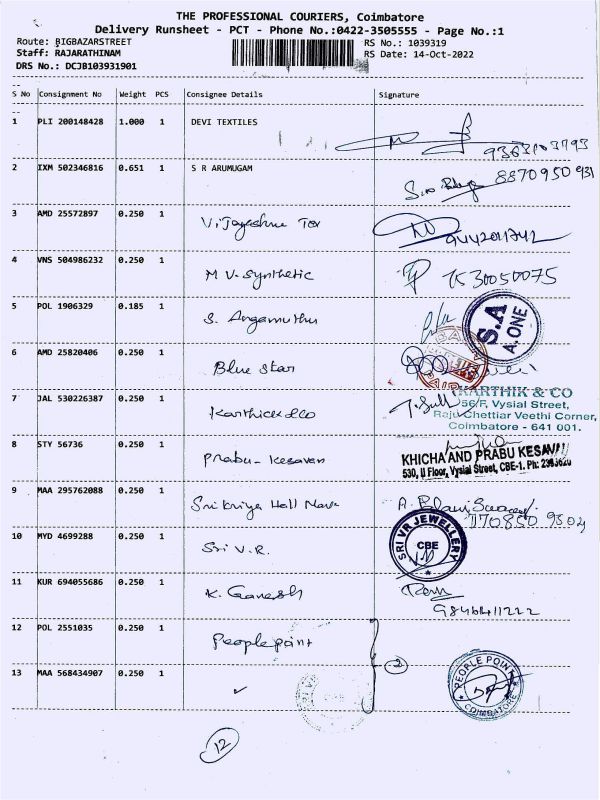 THE PROFESSIONAL COURIERS, Coimbatore
Delivery Runsheet - PCT - Phone No.:0422-3505555 - Page No.:1
Route: BIGBAZARSTREET
RS No.: 1039319
Staff: RAJARATHINAM
RS Date: 14-Oct-2022
DRS No.: DCJB103931901
S No Consignment No Weight PCS Consignee Details Signature
1 PLI 200148428 1.000 1 DEVI TEXTILES
9363103793
2 IXM 502346816 0.651 1 S R ARUMUGAM
8870950931
3 AMD 25572897 0.250 1 Vijayashree Tex
9442011742
4 VNS 504986232 0.250 1 M V-Synthetic
7530050075
5 POL 1906329 0.185 1 S. Angamuthu
S.A
A.ONE
6 AMD 25820406 0.250 1 Blue star
7 JAL 530226387 0.250 1 Karthick &co
KARTHIK & CO
56/F, Vysial Street,
Raju Chettiar Veethi Corner,
Coimbatore - 641 001.
8 STY 56736 0.250 1 Prabu-Kesavan
KHICHA AND PRABU KESAVAN
530, II Floor, Vysial Street, CBE-1. Ph:
9 MAA 295762088 0.250 1 Sri Kriya Hall Mark
10 MYD 4699288 0.250 1 Sri V.R.
SRI VR JEWELLERY
CBE
11 KUR 694055686 0.250 1 K. Ganesh
12 POL 2551035 0.250 1 People point
2
13 MAA 568434907 0.250 1
PEOPLE POINT
COIMBATORE
12